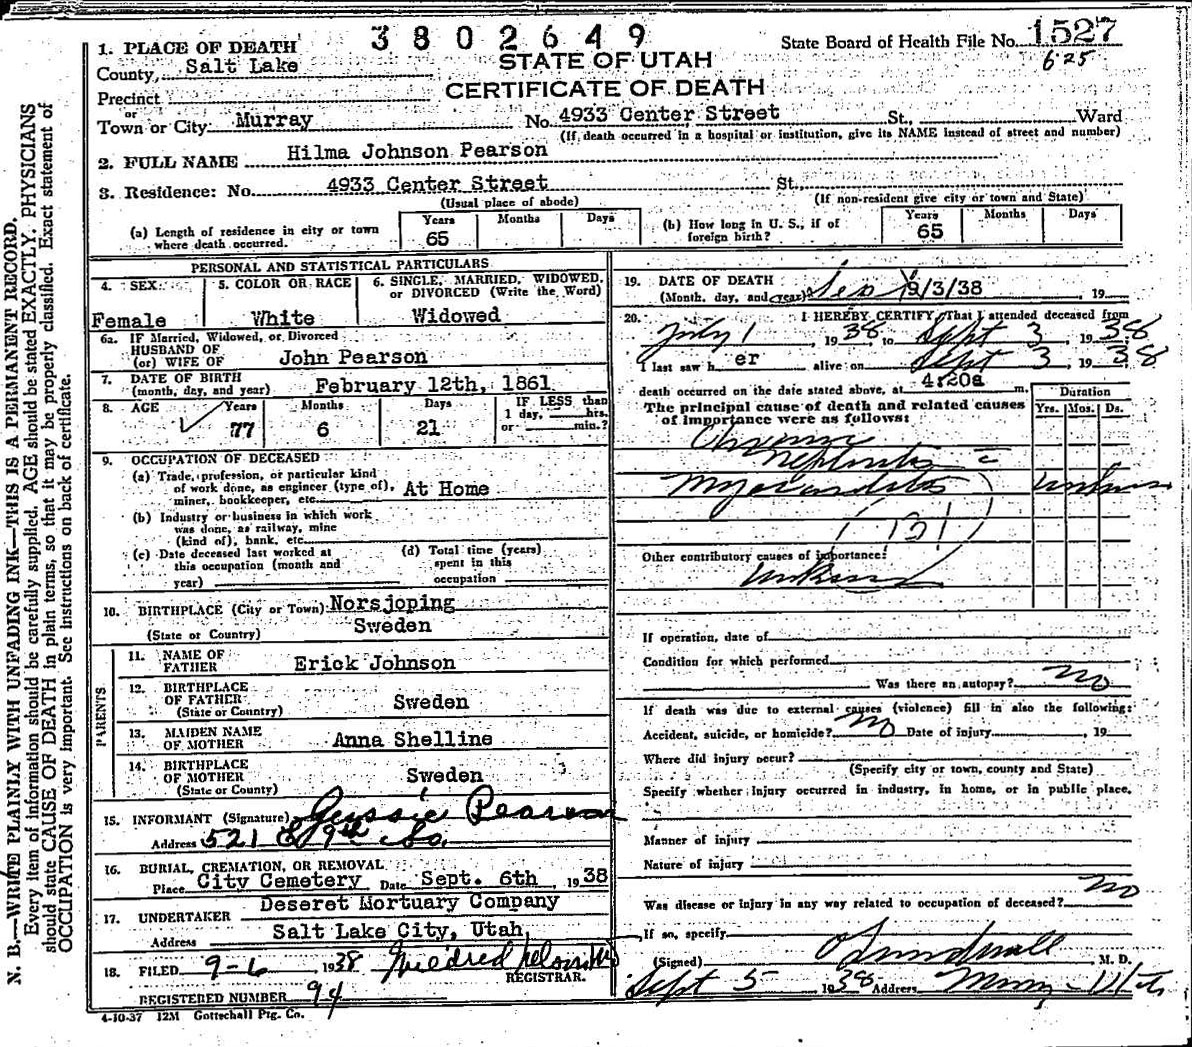 3802649
State Board of Health File No. 1527
625
STATE OF UTAH
CERTIFICATE OF DEATH
1. PLACE OF DEATH
County, Salt Lake
Precinct
or
Town or City Murray No. 4933 Center Street St., Ward
(If death occurred in a hospital or institution, give its NAME instead of street and number)
2. FULL NAME Hilma Johnson Pearson
3. Residence: No. 4933 Center Street St.,
(Usual place of abode) (If non-resident give city or town and State)
(a) Length of residence in city or town where death occurred. Years 65 Months Days
(b) How long in U. S., if of foreign birth? Years 65 Months Days
PERSONAL AND STATISTICAL PARTICULARS
4. SEX Female
5. COLOR OR RACE White
6. SINGLE, MARRIED, WIDOWED, or DIVORCED (Write the Word) Widowed
6a. IF Married, Widowed, or Divorced
HUSBAND OF
(or) WIFE OF John Pearson
7. DATE OF BIRTH
(month, day, and year) February 12th, 1861
8. AGE Years 77 Months 6 Days 21 IF LESS than 1 day, hrs. or min.?
9. OCCUPATION OF DECEASED
(a) Trade, profession, or particular kind
of work done, as engineer (type of),
miner, bookkeeper, etc. At Home
(b) Industry or business in which work
was done, as railway, mine
(kind of), bank, etc.
(c) Date deceased last worked at
this occupation (month and
year)
(d) Total time (years)
spent in this
occupation
10. BIRTHPLACE (City or Town) Norsjoping
(State or Country) Sweden
PARENTS
11. NAME OF FATHER Erick Johnson
12. BIRTHPLACE OF FATHER
(State or Country) Sweden
13. MAIDEN NAME OF MOTHER Anna Shelline
14. BIRTHPLACE OF MOTHER
(State or Country) Sweden
15. INFORMANT (Signature) Jessie Pearson
Address 521 E 9th So.
16. BURIAL, CREMATION, OR REMOVAL
Place City Cemetery Date Sept. 6th 1938
17. UNDERTAKER Deseret Mortuary Company
Address Salt Lake City, Utah
18. FILED 9-6 1938 Mildred
REGISTRAR.
REGISTERED NUMBER 94
4-10-37 12M Gottschall Ptg. Co.
19. DATE OF DEATH
(Month, day, and year) 9/3/38, 19
20. I HEREBY CERTIFY, That I attended deceased from
July 1 1938 to Sept 3, 1938
I last saw h er alive on Sept 3, 1938
death occurred on the date stated above, at 4:20a m.
The principal cause of death and related causes
of importance were as follows:
Duration
Yrs. Mos. Ds.
Chronic
Nephritis
Myocarditis unknown
131
Other contributory causes of importance:
unknown
If operation, date of
Condition for which performed
Was there an autopsy? no
If death was due to external causes (violence) fill in also the following:
Accident, suicide, or homicide? no Date of injury, 19
Where did injury occur?
(Specify city or town, county and State)
Specify whether injury occurred in industry, in home, or in public place.
Manner of injury
Nature of injury
Was disease or injury in any way related to occupation of deceased? no
If so, specify
(Signed) Sundwall, M. D.
Sept 5 1938 Address Murray - Utah
N. B.—WRITE PLAINLY WITH UNFADING INK—THIS IS A PERMANENT RECORD.
Every item of information should be carefully supplied. AGE should be stated EXACTLY. PHYSICIANS
should state CAUSE OF DEATH in plain terms, so that it may be properly classified. Exact statement of
OCCUPATION is very important. See instructions on back of certificate.